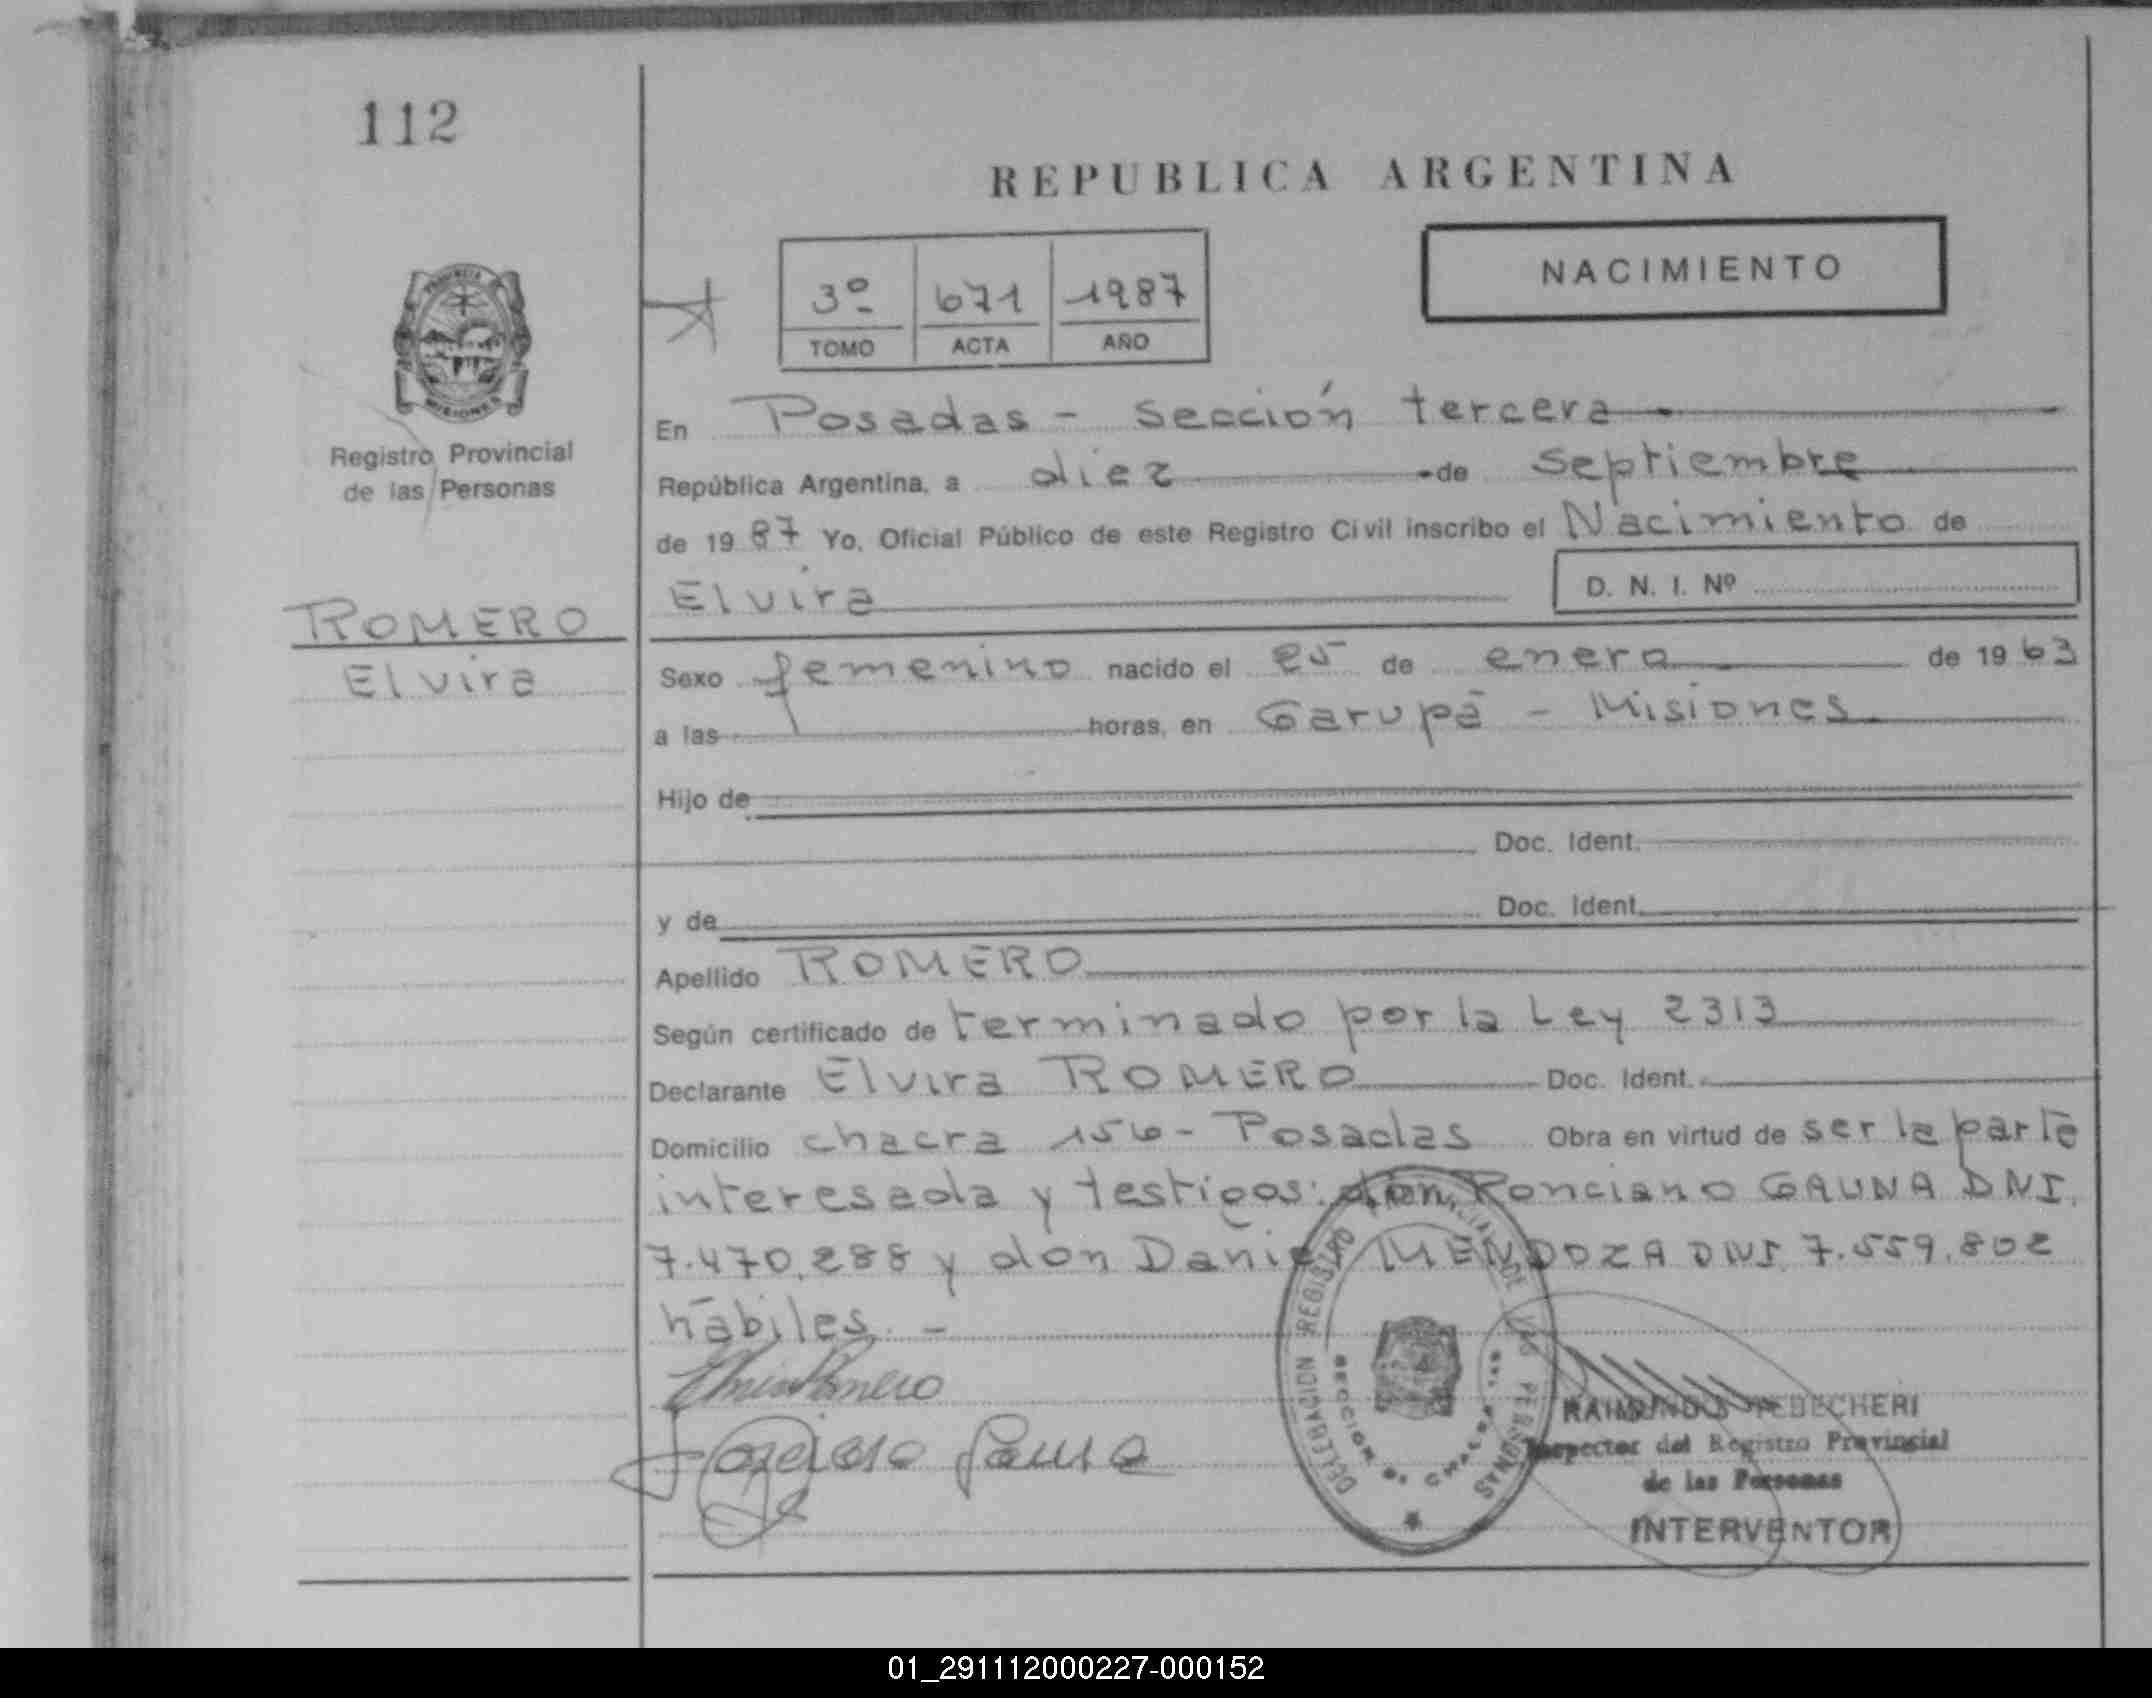 112
REPUBLICA ARGENTINA
NACIMIENTO
3º 671 1987
TOMO ACTA AÑO
PROVINCIA
MISIONES
Registro Provincial
de las Personas
En Posadas - sección tercera
República Argentina, a diez de septiembre
de 1987 Yo, Oficial Público de este Registro Civil inscribo el Nacimiento de
Elvira D. N. I. Nº
ROMERO
Elvira
Sexo femenino nacido el 25 de enero de 1963
a las horas, en Garupá - Misiones
Hijo de
Doc. Ident.
y de Doc. Ident.
Apellido ROMERO
Según certificado de terminado por la Ley 2313
Declarante Elvira ROMERO Doc. Ident.
Domicilio chacra 156 - Posadas Obra en virtud de ser la parte
interesada y testigos: don Ponciano GAUNA DNI.
7.470.288 y don Daniel MENDOZA DNI. 7.559.802
hábiles. -
Elvira Romero
Gauna
DELEGACION REGISTRO PROVINCIAL DE LAS PERSONAS
RAIMUNDO TEBECHERI
Inspector del Registro Provincial
de las Personas
INTERVENTOR
01_291112000227-000152